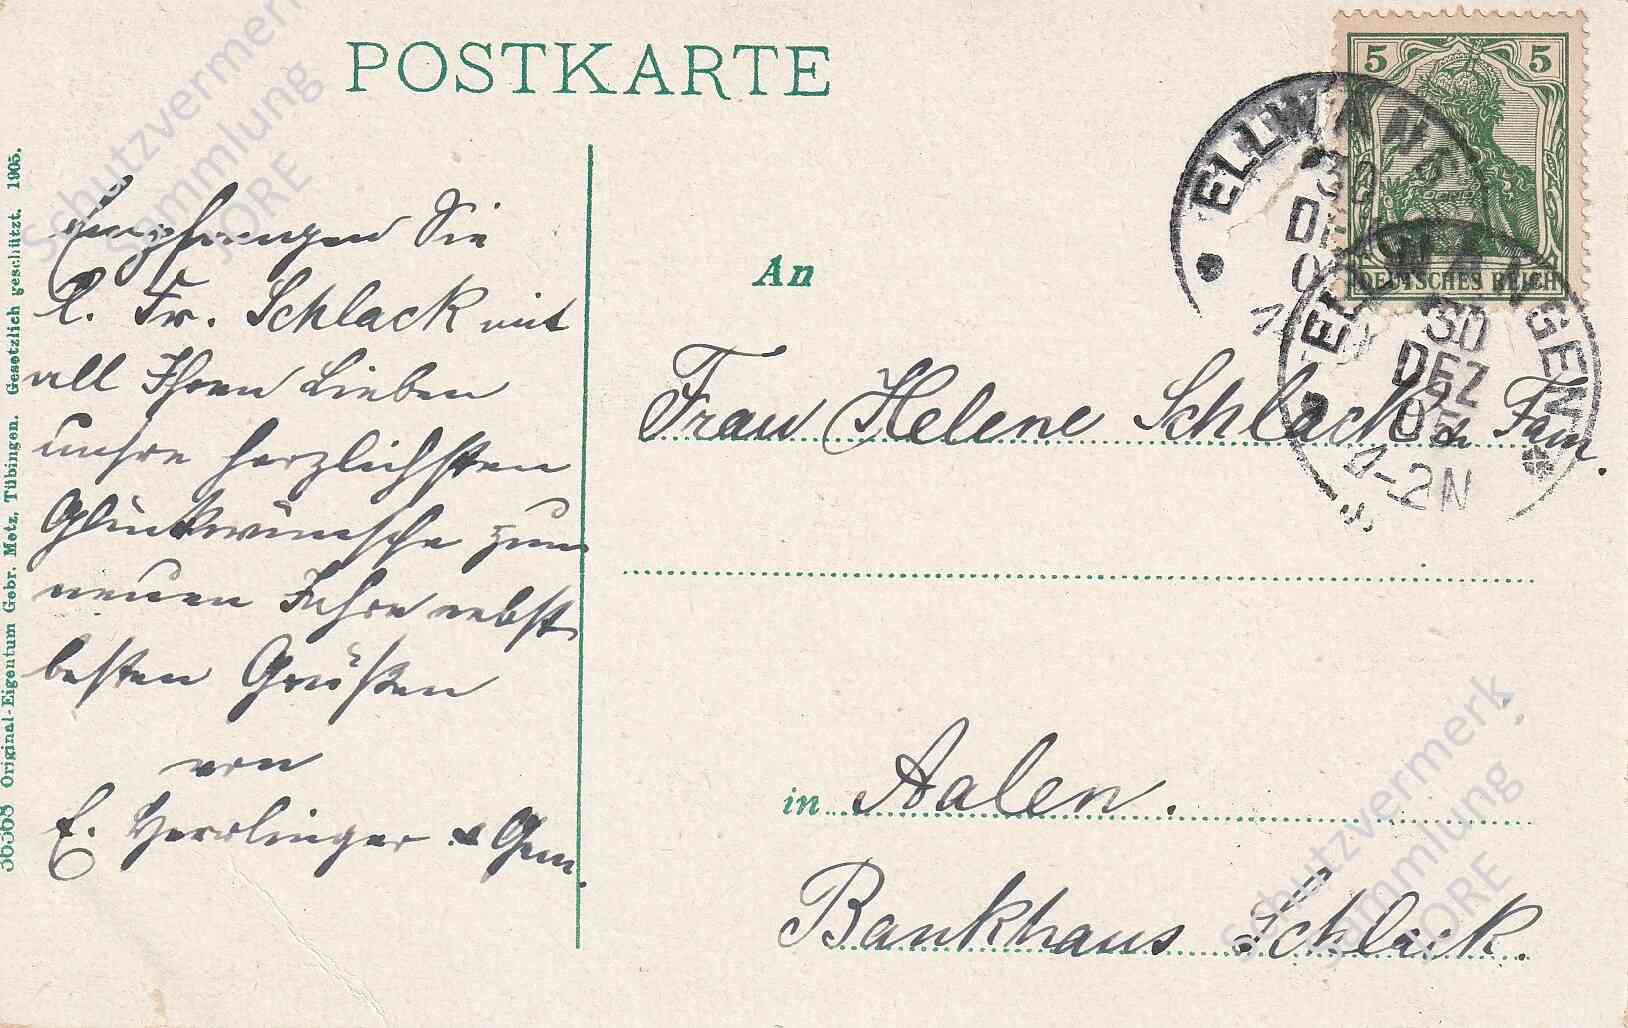 POSTKARTE
5 5
DEUTSCHES REICH
ELLWANG
30
DE
ELLWANGEN
30
DEZ
05
1-2N
Empfangen Sie
l. Fr. Schlack mit
all Ihren Lieben
unsre herzlichsten
Glückwünsche zum
neuen Jahre nebst
besten Grüßen
von
E. Herrlinger & Gem.
An
Frau Helene Schlack & Fam.
in Aalen.
Bankhaus Schlack.
36368 Original-Eigentum Gebr. Metz, Tübingen. Gesetzlich geschützt. 1905.
Schutzvermerk
Sammlung
JORE
Schutzvermerk
Sammlung
JORE